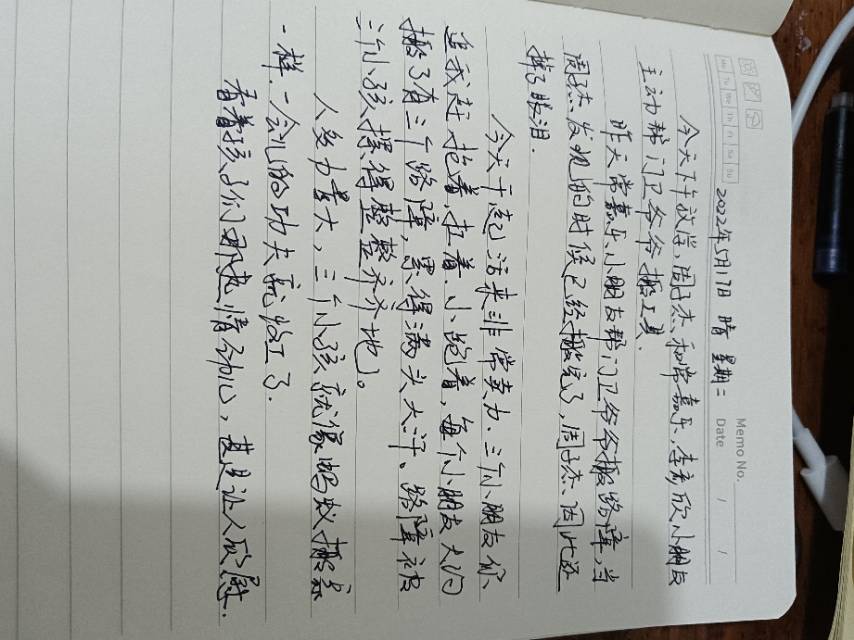 Memo No.
Date / /
Mo Tu We Th Fr Sa Su
2022年5月17日 晴 星期二
今天下午放学,周子杰和常嘉乐,李彦欣小朋友
主动帮门卫爷爷搬工具.
昨天常嘉乐小朋友帮门卫爷爷搬路障,当
周子杰发现的时候已经搬完了,周子杰因此还
掉了眼泪.
今天干起活来非常卖力.三个小朋友你
追我赶,抱着,扛着,小跑着,每个小朋友大约
搬了有三个路障,累得满头大汗、路障被
三个小孩摆得整整齐齐地。
人多力量大,三个小孩就像蚂蚁搬家
一样.一会儿的功夫就收工了.
看着孩子们那热情劲儿,甚是让人欣慰.